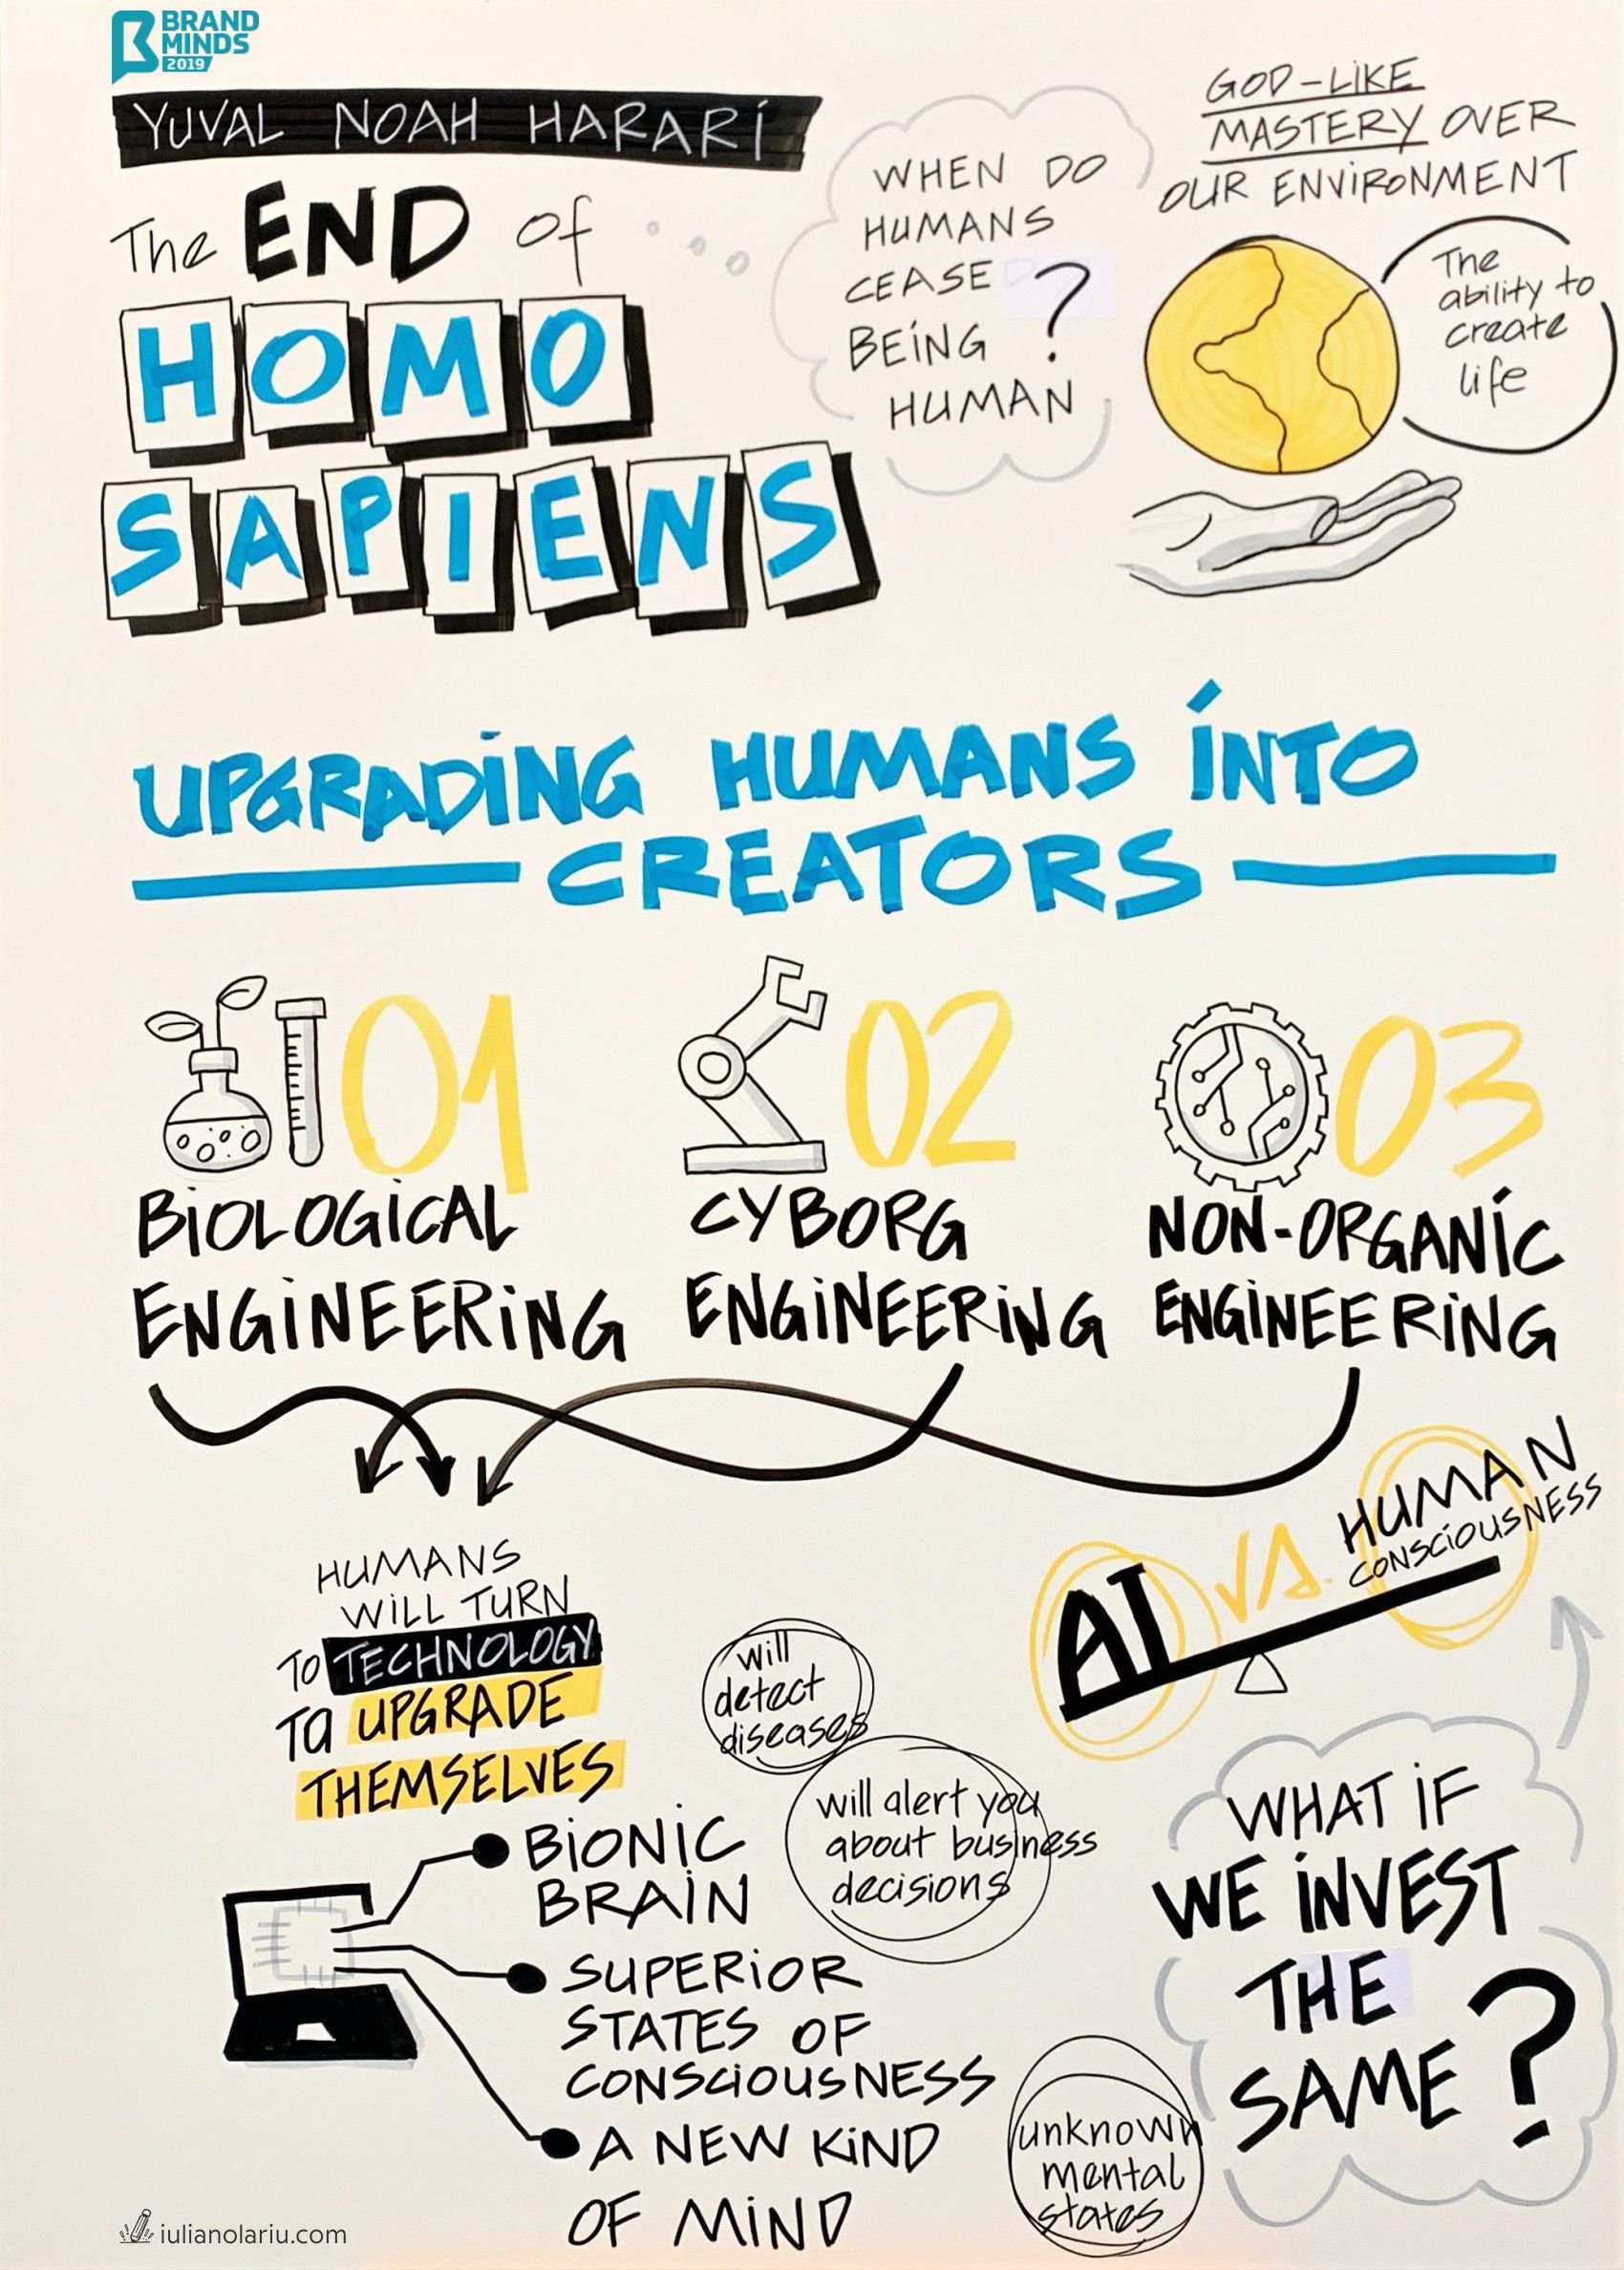 BRAND
MINDS
2019
YUVAL NOAH HARARI
The END of
HOMO
SAPIENS
WHEN DO
HUMANS
CEASE
BEING ?
HUMAN
GOD-LIKE
MASTERY OVER
OUR ENVIRONMENT
The
ability to
create
life
UPGRADING HUMANS INTO
CREATORS
01
BIOLOGICAL
ENGINEERING
02
CYBORG
ENGINEERING
03
NON-ORGANIC
ENGINEERING
HUMANS
WILL TURN
TO TECHNOLOGY
TO UPGRADE
THEMSELVES
AI VS. HUMAN
CONSCIOUSNESS
will
detect
diseases
will alert you
about business
decisions
BIONIC
BRAIN
SUPERIOR
STATES OF
CONSCIOUSNESS
A NEW KIND
OF MIND
unknown
mental
states
WHAT IF
WE INVEST
THE
SAME ?
iulianolariu.com